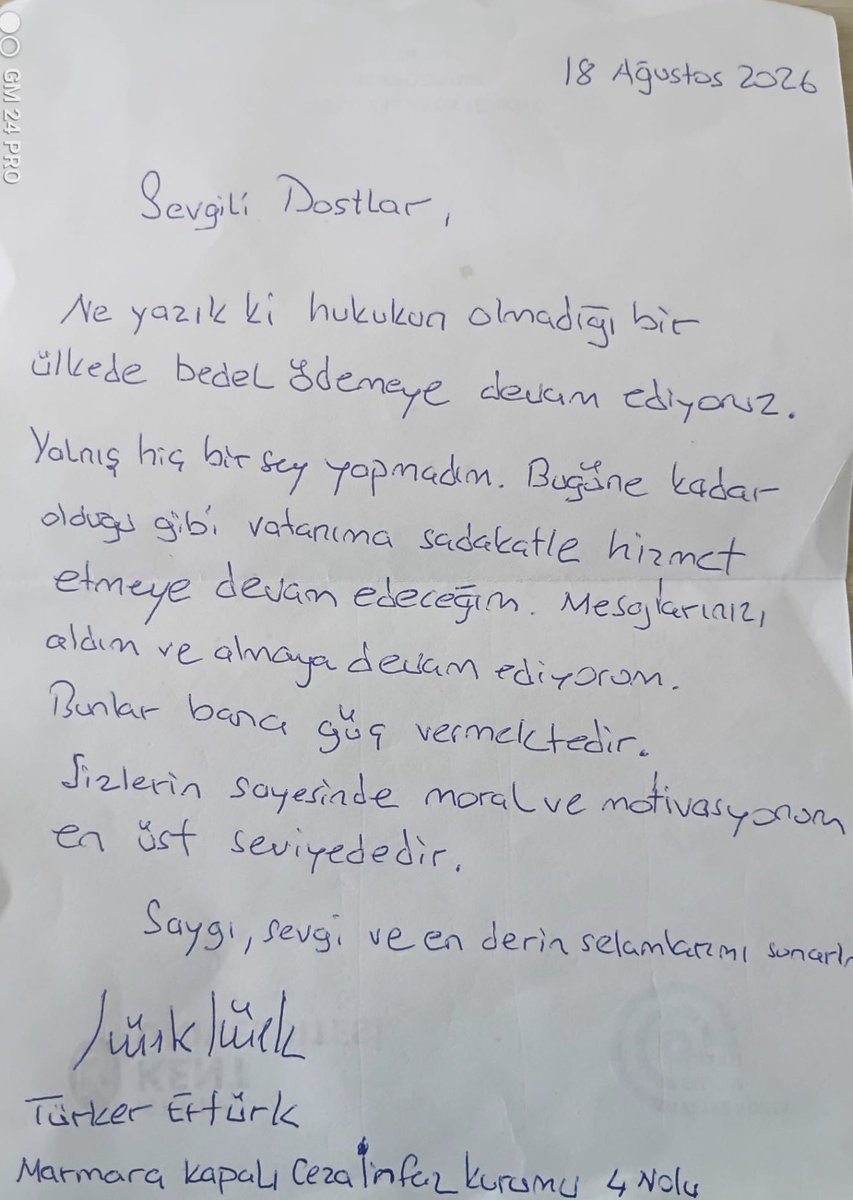 GM 24 PRO
18 Ağustos 2026
Sevgili Dostlar,
Ne yazık ki hukukun olmadığı bir
ülkede bedel ödemeye devam ediyoruz.
Yalnış hiç bir şey yapmadım. Bugüne kadar
olduğu gibi vatanıma sadakatle hizmet
etmeye devam edeceğim. Mesajlarınızı
aldım ve almaya devam ediyorum.
Bunlar bana güç vermektedir.
Sizlerin sayesinde moral ve motivasyonum
en üst seviyededir.
Saygı, sevgi ve en derin selamlarımı sunarı
Türker Ertürk
Marmara Kapalı Ceza İnfaz Kurumu 4 Nolu